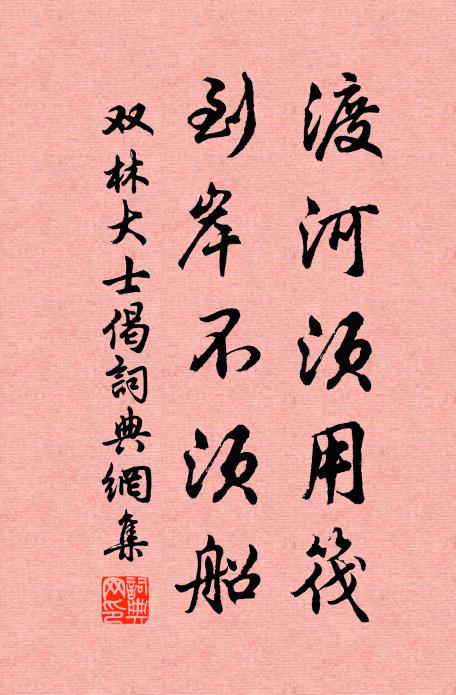 渡河须用筏
到岸不须船
双林大士偈詞典網集
詞典
网印